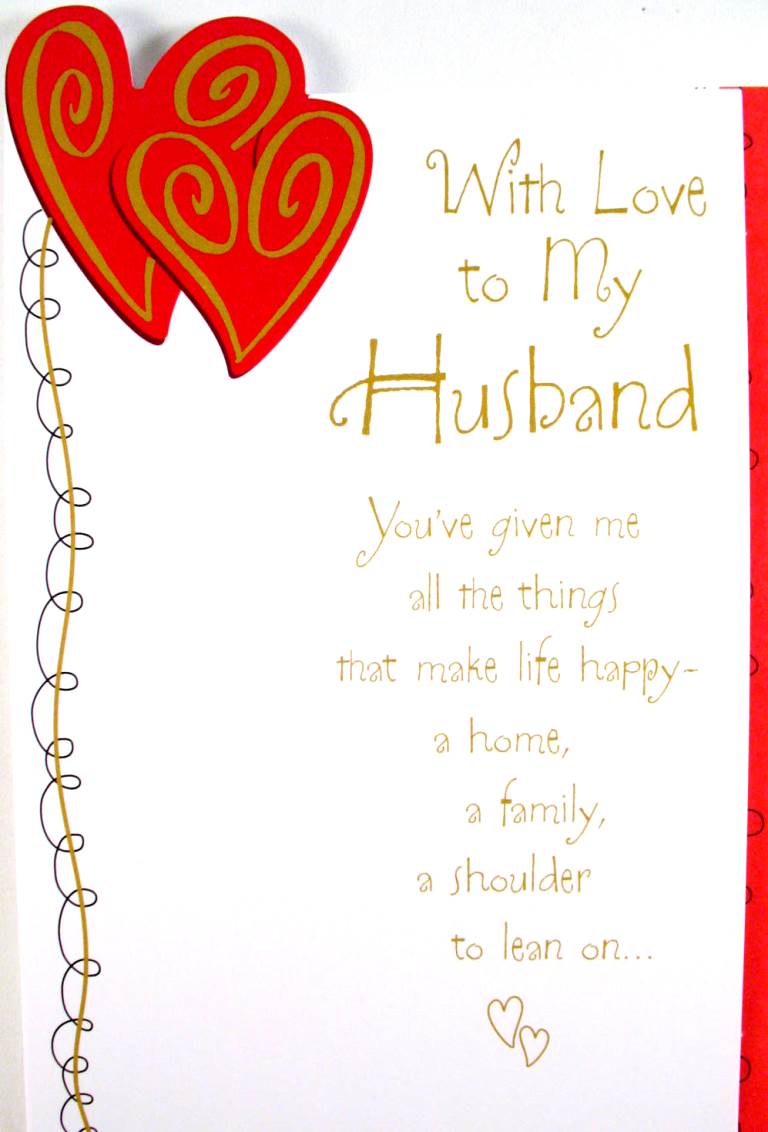 With Love
to My
Husband
You've given me
all the things
that make life happy-
a home,
a family,
a shoulder
to lean on...